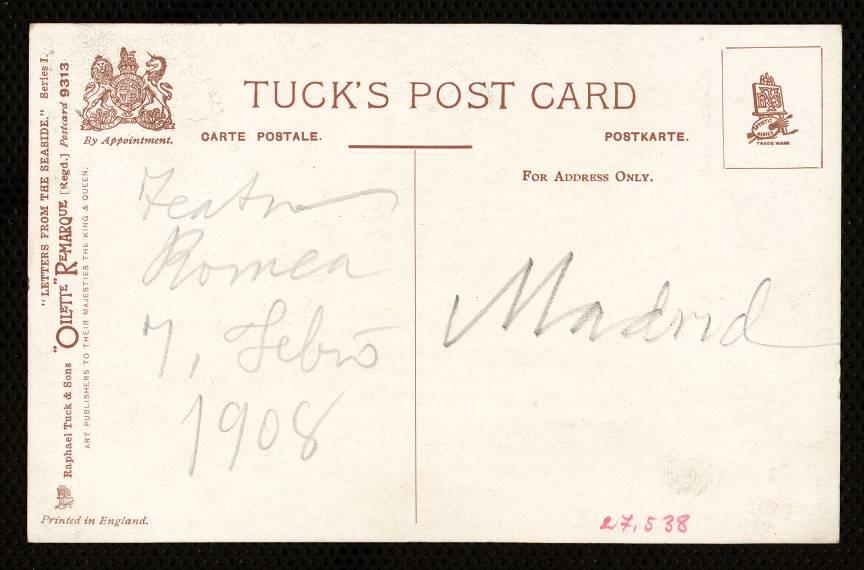 "LETTERS FROM THE SEASIDE." Series I.
"OILETTE" REMARQUE [Regd.] Postcard 9313
Raphael Tuck & Sons
ART PUBLISHERS TO THEIR MAJESTIES THE KING & QUEEN.
Printed in England.
By Appointment.
TUCK'S POST CARD
CARTE POSTALE.
POSTKARTE.
FOR ADDRESS ONLY.
TRADE MARK
Teatro
Romea
7, Febro
1908
Madrid
27,538